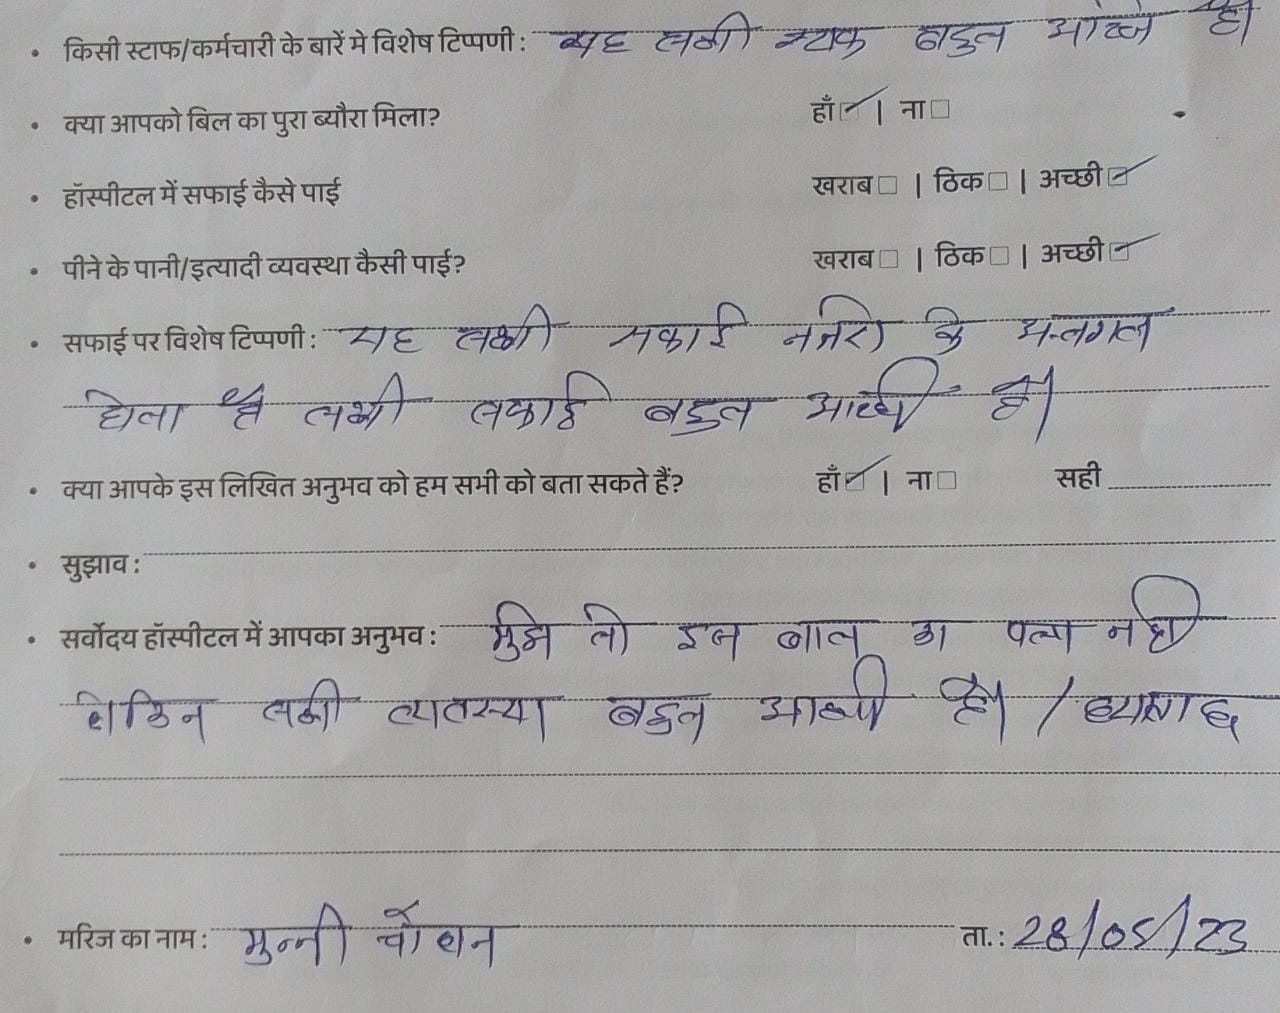 • किसी स्टाफ/कर्मचारी के बारें मे विशेष टिप्पणी : यह सभी स्टाफ बहुत अच्छे है।
• क्या आपको बिल का पुरा ब्यौरा मिला? हाँ☑ | ना□
• हॉस्पीटल में सफाई कैसे पाई खराब□ | ठिक□ | अच्छी☑
• पीने के पानी/इत्यादी व्यवस्था कैसी पाई? खराब□ | ठिक□ | अच्छी☑
• सफाई पर विशेष टिप्पणी : यह सभी सफाई के
होता है सभी सफाई बहुत आच्छी है।
• क्या आपके इस लिखित अनुभव को हम सभी को बता सकते हैं? हाँ☑ | ना□ सही
• सुझाव :
• सर्वोदय हॉस्पीटल में आपका अनुभव : मुझे तो इस बात का पता नही
लेकिन सभी व्यवस्था बहुत आच्छी है। /
• मरिज का नाम : मुन्नी चौहान ता.: 28/05/23